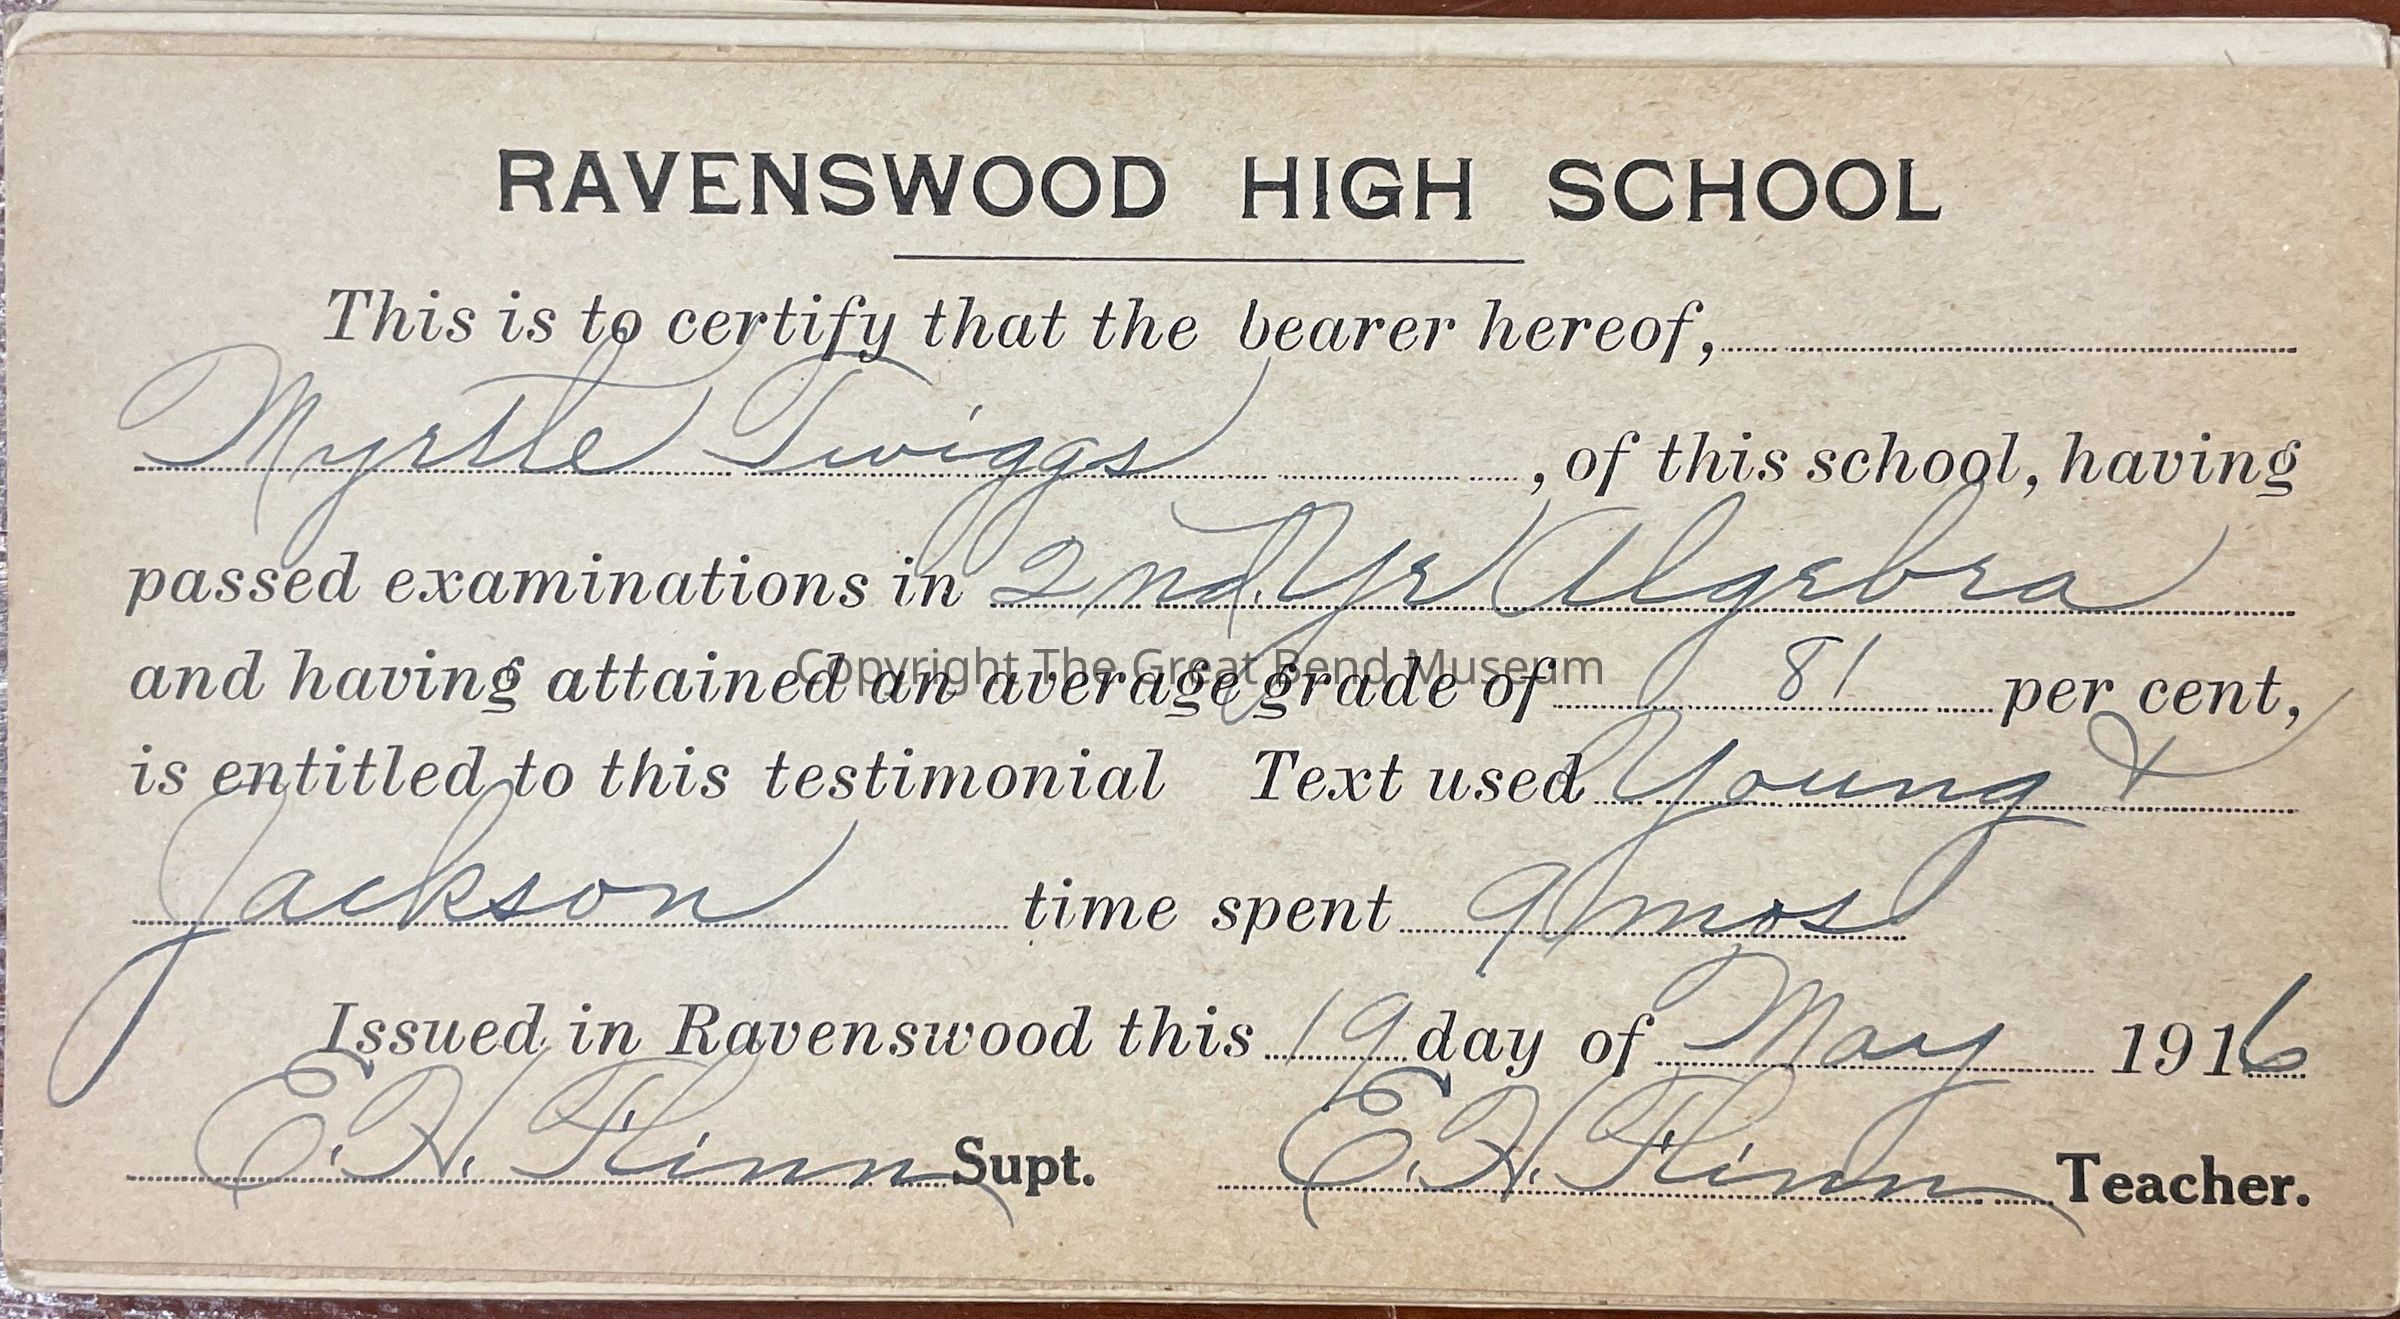 RAVENSWOOD HIGH SCHOOL
This is to certify that the bearer hereof,
Myrtle Twiggs, of this school, having
passed examinations in 2nd. Yr Algebra
and having attained an average grade of 81 per cent,
Copyright The Great Bend Museum
is entitled to this testimonial Text used Young &
Jackson time spent 9 mos
Issued in Ravenswood this 19 day of May 1916
E. H. Flinn Supt. E. H. Flinn Teacher.